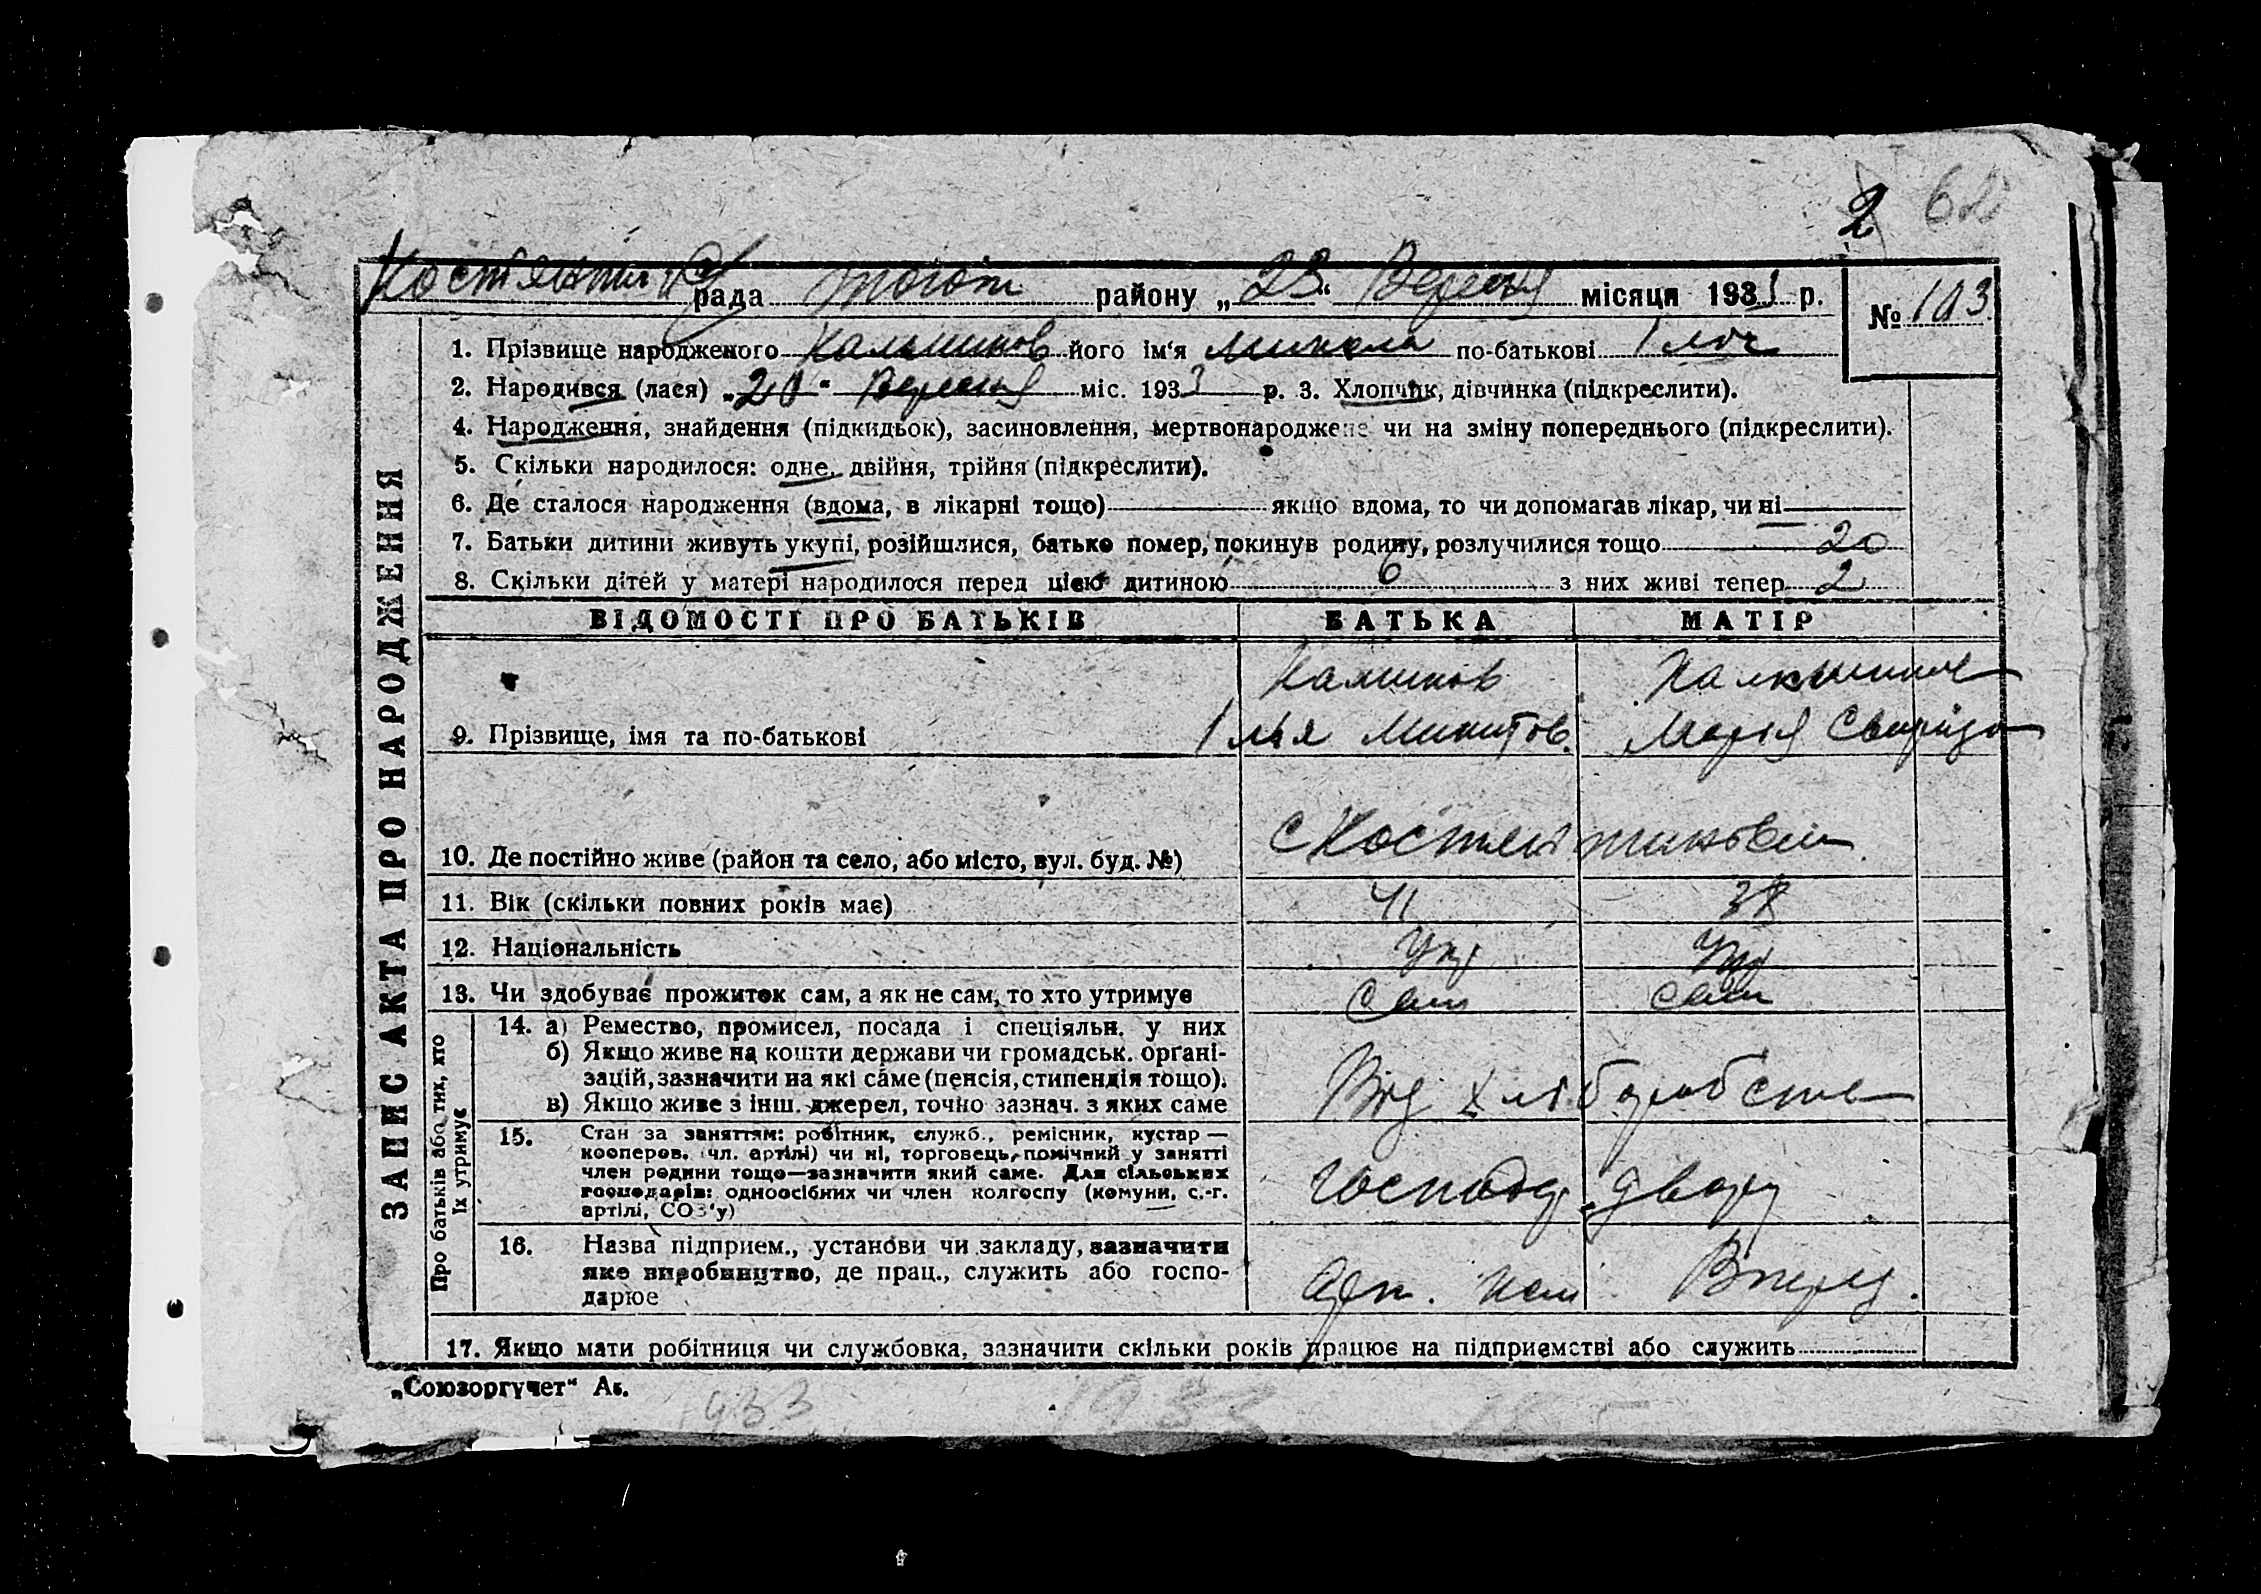 2 62
рада району „23“ Вересня місяця 1933 р.
№ 103
1. Прізвище народженого Калынников його ім'я Микола по-батькові Іллич
2. Народився (лася) „20“ Вересня міс. 1933 р. 3. Хлопчик, дівчинка (підкреслити).
4. Народження, знайдення (підкидьок), засиновлення, мертвонароджене чи на зміну попереднього (підкреслити).
5. Скільки народилося: одне, двійня, трійня (підкреслити).
6. Де сталося народження (вдома, в лікарні тощо) якщо вдома, то чи допомагав лікар, чи ні
7. Батьки дитини живуть укупі, розійшлися, батько помер, покинув родину, розлучилися тощо 20
8. Скільки дітей у матері народилося перед цією дитиною 6 з них живі тепер 2
ЗАПИС АКТА ПРО НАРОДЖЕННЯ
ВІДОМОСТІ ПРО БАТЬКІВ БАТЬКА МАТІР
9. Прізвище, імя та по-батькові Ілья Микитов. Марія Свирідо
10. Де постійно живе (район та село, або місто, вул. буд. №) с Костянтиновки
11. Вік (скільки повних років має) 41 38
12. Національність Укр Укр
13. Чи здобуває прожиток сам, а як не сам, то хто утримує Сам сам
Про батьків або тих, хто їх утримує
14. а) Ремество, промисел, посада і спеціяльн. у них
б) Якщо живе на кошти держави чи громадськ. орґані-
зацій, зазначити на які саме (пенсія, стипендія тощо).
в) Якщо живе з інш. джерел, точно зазнач. з яких саме
Від хліборобства
15. Стан за заняттям: робітник, служб., ремісник, кустар —
кооперов. (чл. артілі) чи ні, торговець, помічний у занятті
член родини тощо—зазначити який саме. Для сільських
господарів: одноосібних чи член колгоспу (комуни, с.-г.
артілі, СОЗ'у)
господар двору
16. Назва підприєм., установи чи закладу, зазначити
яке виробництво, де прац., служить або госпо-
дарює
Вперед.
17. Якщо мати робітниця чи службовка, зазначити скільки років працює на підприємстві або служить
„Союзоргучет“ Ак.
933 1933